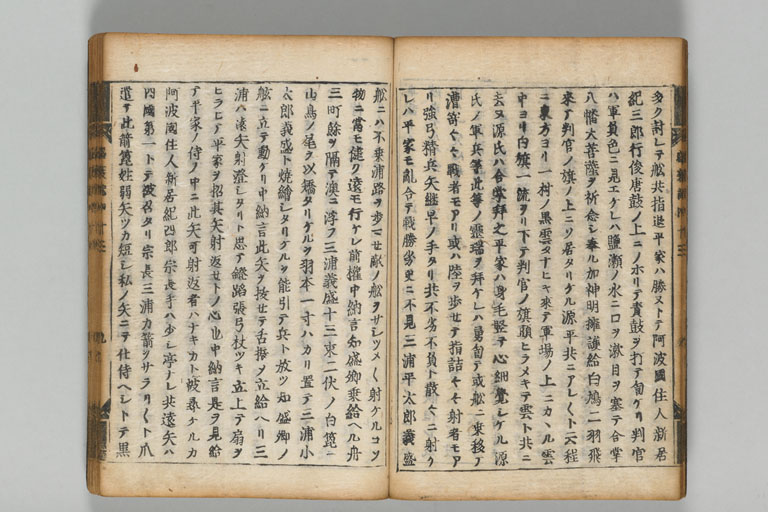 多ク討レテ舩共指退平家ハ勝ヌトテ阿波國住人新居
紀三郎行俊唐鼓ノ上ニノホリテ責鼓ヲ打テ訇ケリ判官
ハ軍負色ニ見エケレハ鹽瀬ノ水ニ口ヲ漱目ヲ塞テ合掌
八幡大菩薩ヲ祈念シ奉ル加神明擁護給白鳩二羽飛
來テ判官ノ旗ノ上ニソ居タリケル源平共ニアレ〱ト云程
ニ東方ヨリ一村ノ黒雲タナヒキ來テ軍場ノ上ニカヽル雲
中ヨリ白旗一流ヲリ下テ判官ノ旗頭ヒラメキテ雲ト共ニ
去ヌ源氏ハ合掌拜之平家ハ身毛竪テ心細覺シケル源
氏ノ軍兵等此等ノ靈瑞ヲ拜ケレハ勇訇テ或舩ニ乗移テ
漕寄〱戰者モアリ或ハ陸ヲ歩セテ指詰〱射者モア
リ強弓精兵矢継早ノ手タリ共不劣不負ト散〱ニ射ケ
レハ平家モ亂合テ戰勝劣更ニ不見三浦平太郎義盛
舩ニハ不乗浦路ヲ歩マセ敵ノ舩ヲサシツメ〱射ケルコソ
物ニ當モ健ク遠モ行ケレ前權中納言知盛卿乗給ヘル舟
三町餘ヲ隔テ澳ニ浮フ三浦義盛十三束二伏ノ白箆ニ
山鳥ノ尾ヲ以矯タリケルヲ羽本一寸ハカリ置テ三浦小
太郎義盛ト焼繪シタリケルヲ能引テ兵ト放ツ知盛卿ノ
舷ニ立テ動ケリ中納言此矢ヲ抜セテ舌振ヲ立給ヘリ三
浦ハ遠矢射澄シタリト思テ鐙踏張弓杖ツキ立上テ扇ヲ
ヒラヒテ平家ヲ招其矢射返セトノ心也中納言是ヲ見給
テ平家ノ侍ノ中ニ此矢可射返者ハナキカト被尋ケルカ
阿波國住人新居紀四郎宗長手ハ少シ亭ナレ共遠矢ハ
四國第一トテ被召タリ宗長三浦カ箭ヲサラリ〱ト爪
遣テ此箭箆姓弱矢ツカ短シ私ノ矢ニテ仕侍ヘシトテ黒